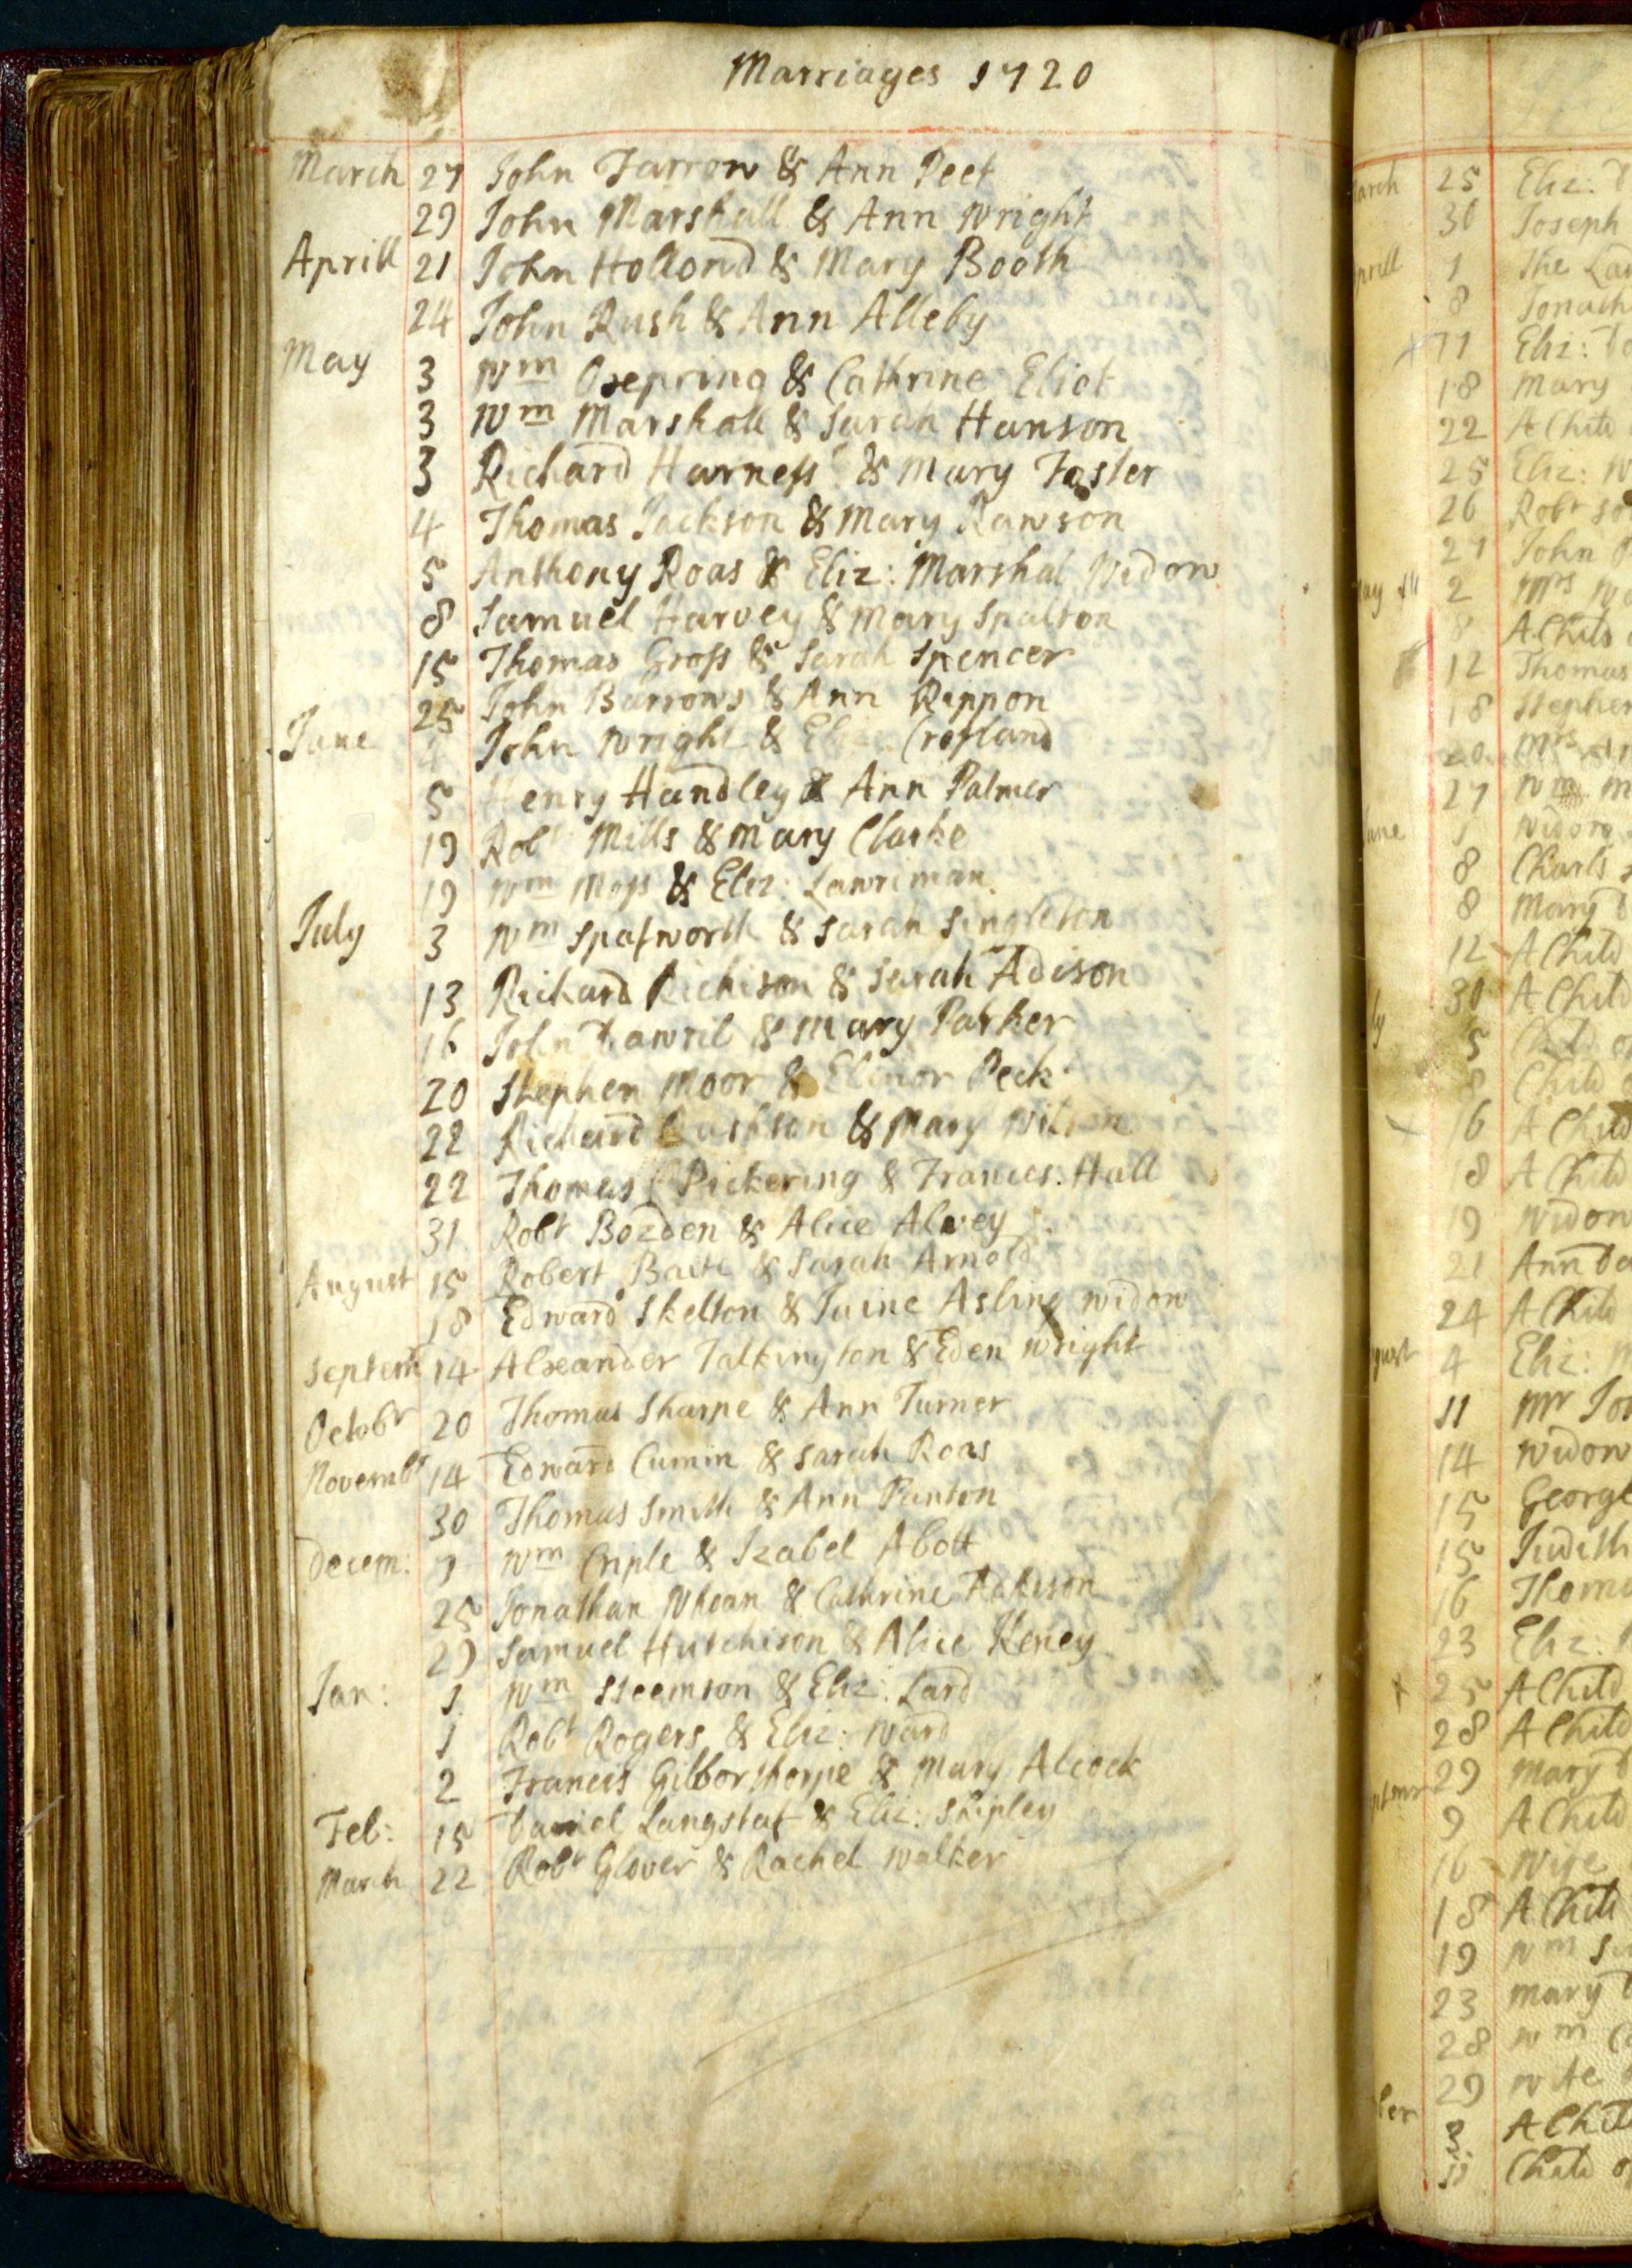 Marriages 1720
March 27 John Farrow & Ann Peet
29 John Marshall & Ann Wright
Aprill 21 John Hollond & Mary Booth
24 John Rush & Ann Alleby
May 3 Wm & Cathrine Eliot
3 Wm Marshall & Sarah Hanson
3 Richard Harness & Mary Foster
4 Thomas Jackson & Mary Rawson
5 Anthony Roas & Eliz: Marshal Widow
8 Samuel Harvey & Mary Spalton
15 Thomas Gross & Sarah Spencer
25 John Burrows & Ann Rippon
June John Wright & Cropland
5 Henry Handley & Ann Palmer
19 Robt Mills & Mary Clarke
19 Wm Moss & Eliz: Lawriman
July 3 Wm Spafworth & Sarah Singleton
13 Richard Richison & Sarah Adison
16 John Dawril & Mary Parker
20 Stephen Moor & Elinor Peck
22 Richard & Mary Wilson
22 Thomas Pickering & Francis: Hall
31 Robt Bozden & Alice Alvey
August 15 Robert & Sarah Arnold
18 Edward Skelton & Juine Asling widow
Septem 14 Alexander Talkington & Eden Wright
Octobr 20 Thomas Sharpe & Ann Turner
Novembr 14 Edward Cumin & Sarah Roas
30 Thomas Smith & Ann Panton
Decem: Wm Criple & Izabel Abott
25 Jonathan & Cathrine Adkison
29 Samuel Hutchison & Alice Keney
Jan: 1 Wm Steemson & Eliz: Lard
1 Robt Rogers & Eliz: Ward
2 Francis Gilborthorpe & Mary Alcock
Feb: 15 Daniel Langstaf & Eliz: Shipley
March 22 Robt Glover & Rachel Walker
25 Eliz:
30 Joseph
1 The
8
11 Eliz:
18 Mary
22 A Child
25 Eliz:
26 Robt
27 John
2 Mrs
8 A Child
12 Thomas
18 Stephen
Mrs
27 Wm
Widow
8 Charls
8 Mary
12 A Child
30 A Child
5 Child
8 Child
16 A Child
18 A Child
19 Widow
21 Ann
24 A Child
4 Eliz:
11 Mr
14 Widow
15 George
15 Judith
16
23 Eliz:
25 A Child
28 A Child
29 Mary
9 A Child
16 Wife
18 A Child
19 Wm
23 Mary
28 Wm
29
3 A Child
11 Child